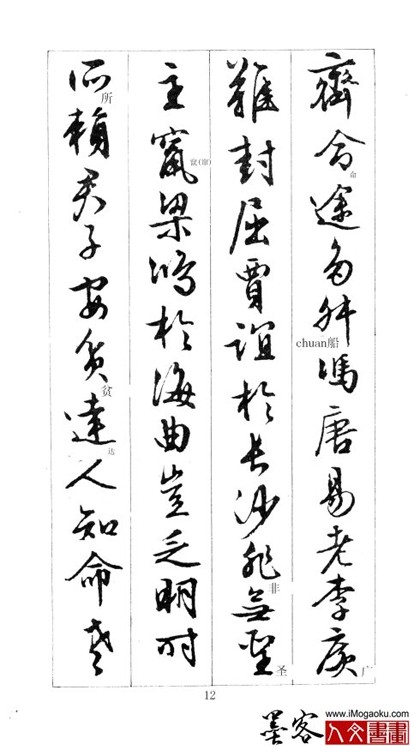 齊命途多舛馮唐易老李廣
命
chuan船
广
難封屈賈誼於長沙非無聖
非
圣
主竄梁鴻於海曲豈乏明時
所賴君子安貧達人知命老
所
贫
达
12
www.iMogaoku.com
墨客
人文書畫